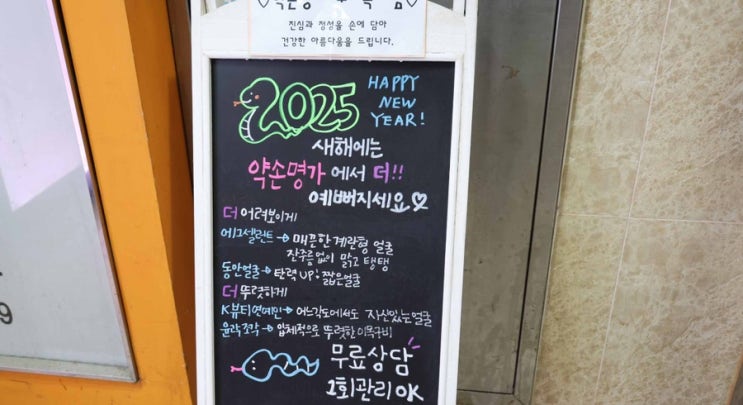 진심과 정성을 손에 담아
건강한 아름다움을 드립니다.
2025 HAPPY
NEW
YEAR!
새해에는
약손명가에서 더!!
예뻐지세요♡
더 어려보이게
에그셀런트 → 매끈한 계란형 얼굴
잔주름없이 맑고 탱탱
동안얼굴 → 탄력 UP! 짧은얼굴
더 뚜렷하게
K뷰티연예인 → 어느각도에서도 자신있는얼굴
윤곽조각 → 입체적으로 뚜렷한 이목구비
무료상담
1회관리 OK
9